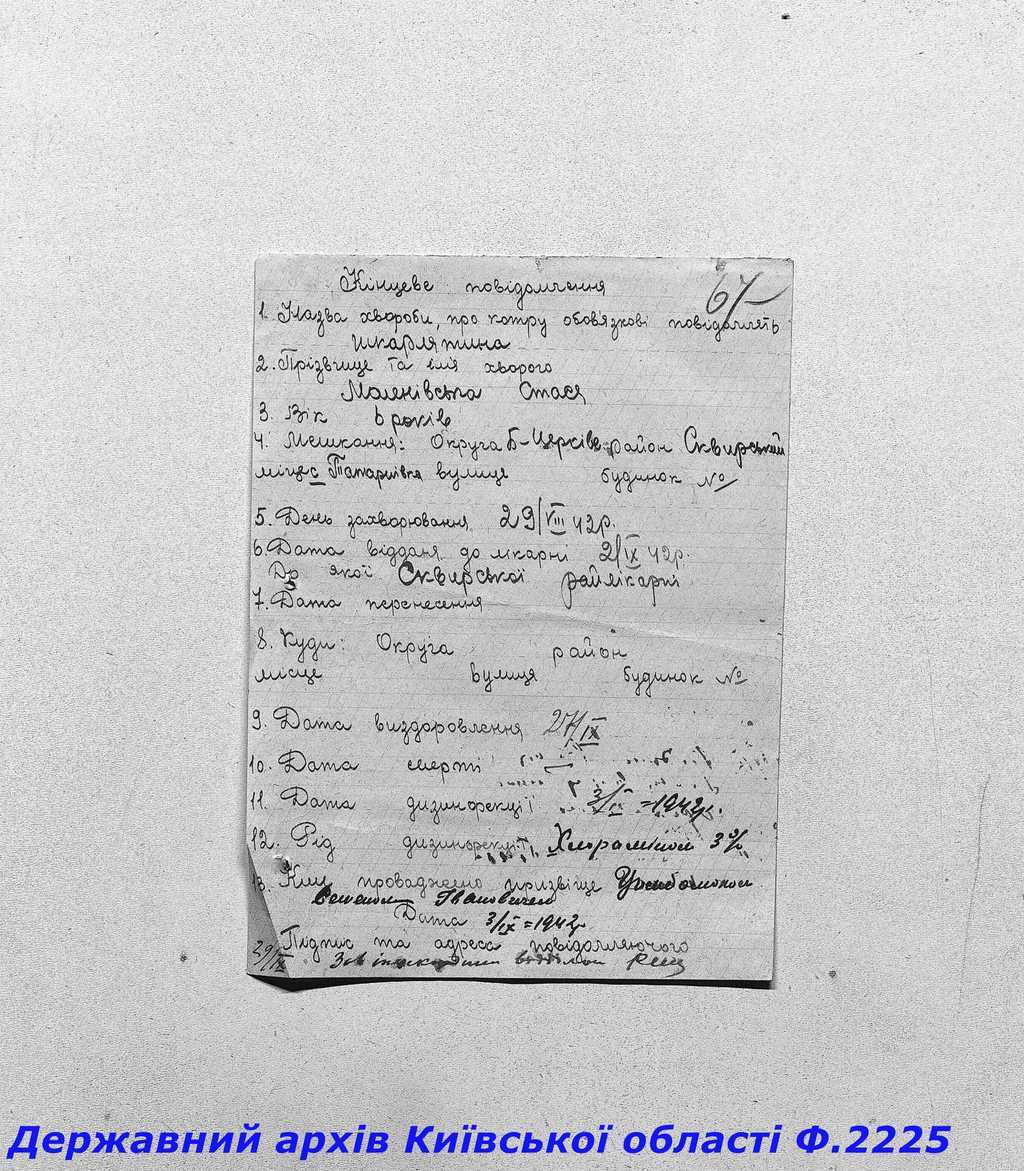 Кінцеве повідомлення
67
1. Назва хвороби, про котру обовязкові повідомлять
шкарлятина
2. Прізвище та імя хворого
Маленівська Стася
3. Вік 6 років
4. Мешкання: Округа Б-Церківс. район Сквирський
місце с Татаринівка вулиця будинок №
5. День захворювання 29/VIII 42р.
6. Дата віддання до лікарні 2/IX 42р.
До якої Сквирської райлікарні
7. Дата перенесення
8. Куди: Округа район
місце вулиця будинок №
9. Дата виздоровлення 27/IX
10. Дата смерті
11. Дата дизинфекції 3/IX = 1942р.
12. Рід дизинфекції Хлораміном 3%
13. Ким проваджено призвіще
Семеном Івановичем
Дата 3/IX = 1942р
Підпис та адреса повідомляючого
29/IX Зав відділом
Державний архів Київської області Ф.2225